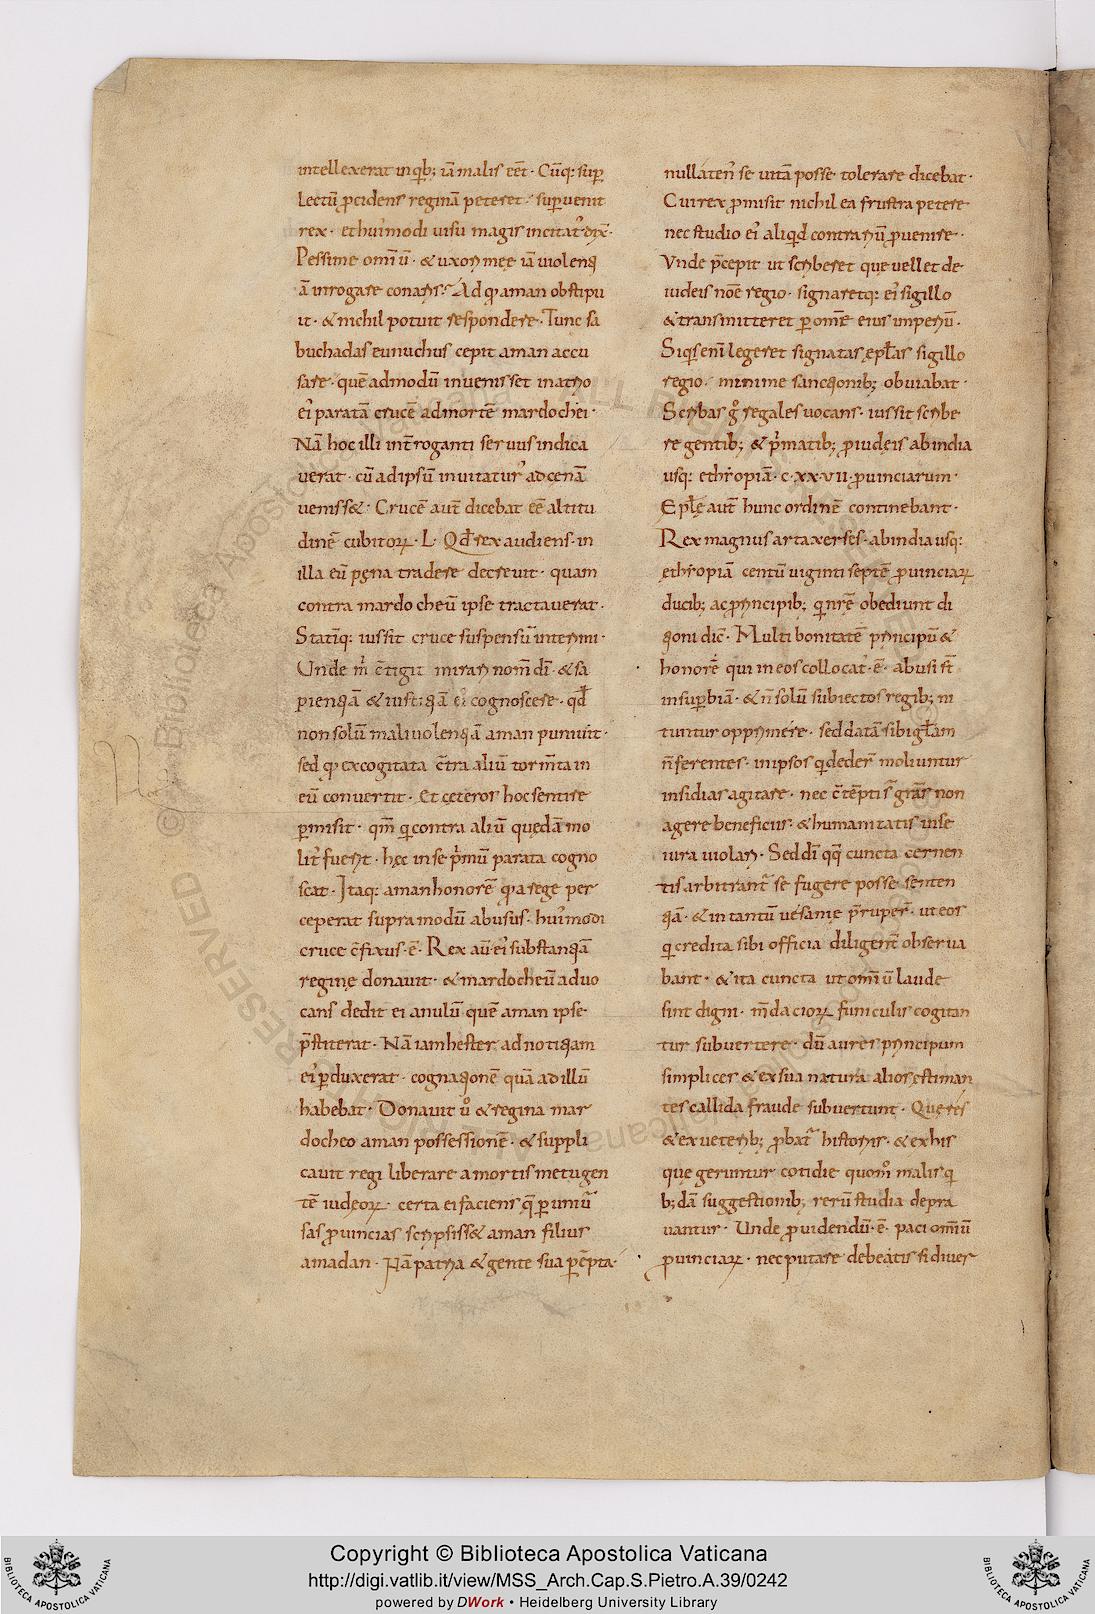 intellexerat inqb; iā malis eēt · Cūq: sup̄
Lectū p̱cidens reginā peteret · sup̱uenit
rex · et hui᷒modi uisu magis incitat᷒ dix̄ ·
Pessime omīū · & uxori meę iā uiolenti
ā inrogare conaris · Ad q̱ aman obstipu
it · & nichil potuit respondere · Tunc sa
buchadas eunuchus cepit aman accu
sare · quēadmodū inuenisset inatrio
ei᷒ paratā crucē admortē mardochei ·
Nā hoc illi int̄roganti seruus indica
uerat · cū adipsū inuitatur᷒ adcenā
uenisset · Crucē aut̄ dicebat eē altitu
dinē cubitoꝝ · L · Qd̄ rex audiens · in
illa eū pęna tradere decreuit · quam
contra mardocheū ipse tractauerat ·
Statīq: iussit cruce suspensū interimi ·
Unde m̄ c̄tigit mirari nom̄ dī · & sa
pientiā & iustitiā ei᷒ cognoscere · qd̄
non solū maliuolentiā aman puniuit ·
sed q̱ excogitata c̄tra aliū torm̄ta in
eū conuertit · Et ceteros hoc sentire
p̱misit · qm̄ qi contra aliū quędā mo
lit᷒ fuerit · hęc inse p̄mū parata cogno
scat · Itaq: aman honorē q̱ a rege per
ceperat supra modū abusus · hui᷒modi
cruce c̄fixus · ē · Rex aū ei᷒ substantiā
reginę donauit · & mardocheū aduo
cans dedit ei anulū quē aman ipse
p̄stiterat · Nā iam hester ad notitiam
ei᷒ p̱duxerat · cognationē quā ad illū
habebat · Donauit ū & regina mar
docheo aman possessionē · & suppli
cauit regi liberare a mortis metu gen
tē iudęoꝝ · certa ei faciens q̄ p̱ uniū̄
sas p̱uincias scripsisset aman filius
amadan · Nā patria & gente sua p̱c̄pta ·
nullaten᷒ se uitā posse tolerare dicebat ·
Cui rex p̱misit nichil ea frustra petere
nec studio ei᷒ aliqd contrariū p̱uenire ·
Vnde p̄cepit ut scriberet que uellet de
iudeis noē regio · signaretq: ei᷒ sigillo
& transmitteret p̱ omē eius imperiū ·
Siqs enī legeret signatas ep̄las sigillo
regio · minime sanctionib; obuiabat ·
Scribas g᷒ regales uocans · iussit scribe
re gentib; & p̄matib; p̱ iudeis ab india
usq: ethiopiā · c · xx · vii · p̱uinciarum ·
Ep̄lę aut̄ hunc ordinē continebant ·
Rex magnus artaxerses · ab india usq:
ethiopiā centū uiginti septē p̱uinciaꝝ
ducib; ac p̱rincipib; qi nr̄ē obediunt di
tioni dic̄ · Multi bonitatē principū &
honorē qui in eos collocat᷒ · ē · abusi st̄
insup̱biā · & n̄ solū subiectos regib; ni
tuntur opprimere · sed datā sibi gl̄am
n̄ ferentes · in ipsos qi dedert̄ moliuntur
insidias agitare · nec c̄tēpti s̄t grās non
agere beneficiis · & humanitatis in se
iura uiolari · Sed dī qq̄ cuncta cernen
tis arbitrant᷒ se fugere posse senten
tiā · & in tantū uesanię p̄rupert̄ · ut eos
qi credita sibi officia diligent̄ obserua
bant · & ita cuncta ut omīū laude
sint digni · m̄daciorꝝ funiculis cogitan
tur subuertere · dū aures principum
simplices & ex sua natura alios ęstiman
tes callida fraude subuertunt · Quę res
& ex ueterib; p̱bat᷒ historiis · & ex his
que geruntur cotidie quom᷒ malis qi
b;dā suggestionib; rerū studia depra
uantur · Unde p̱uidendū · ē · paci omīū
p̱uinciaꝝ · nec putare debeatis si diuer
Copyright © Biblioteca Apostolica Vaticana
http://digi.vatlib.it/view/MSS_Arch.Cap.S.Pietro.A.39/0242
powered by DWork • Heidelberg University Library